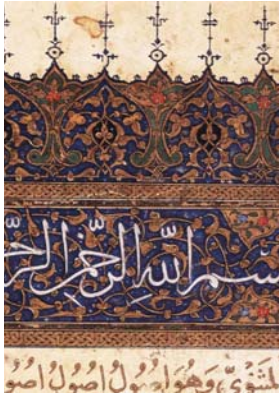 سم اللّه الرّحمن الرّح
لمَثنَوِىّ وَهُوَ اصُولُ اصُولُ اصُو